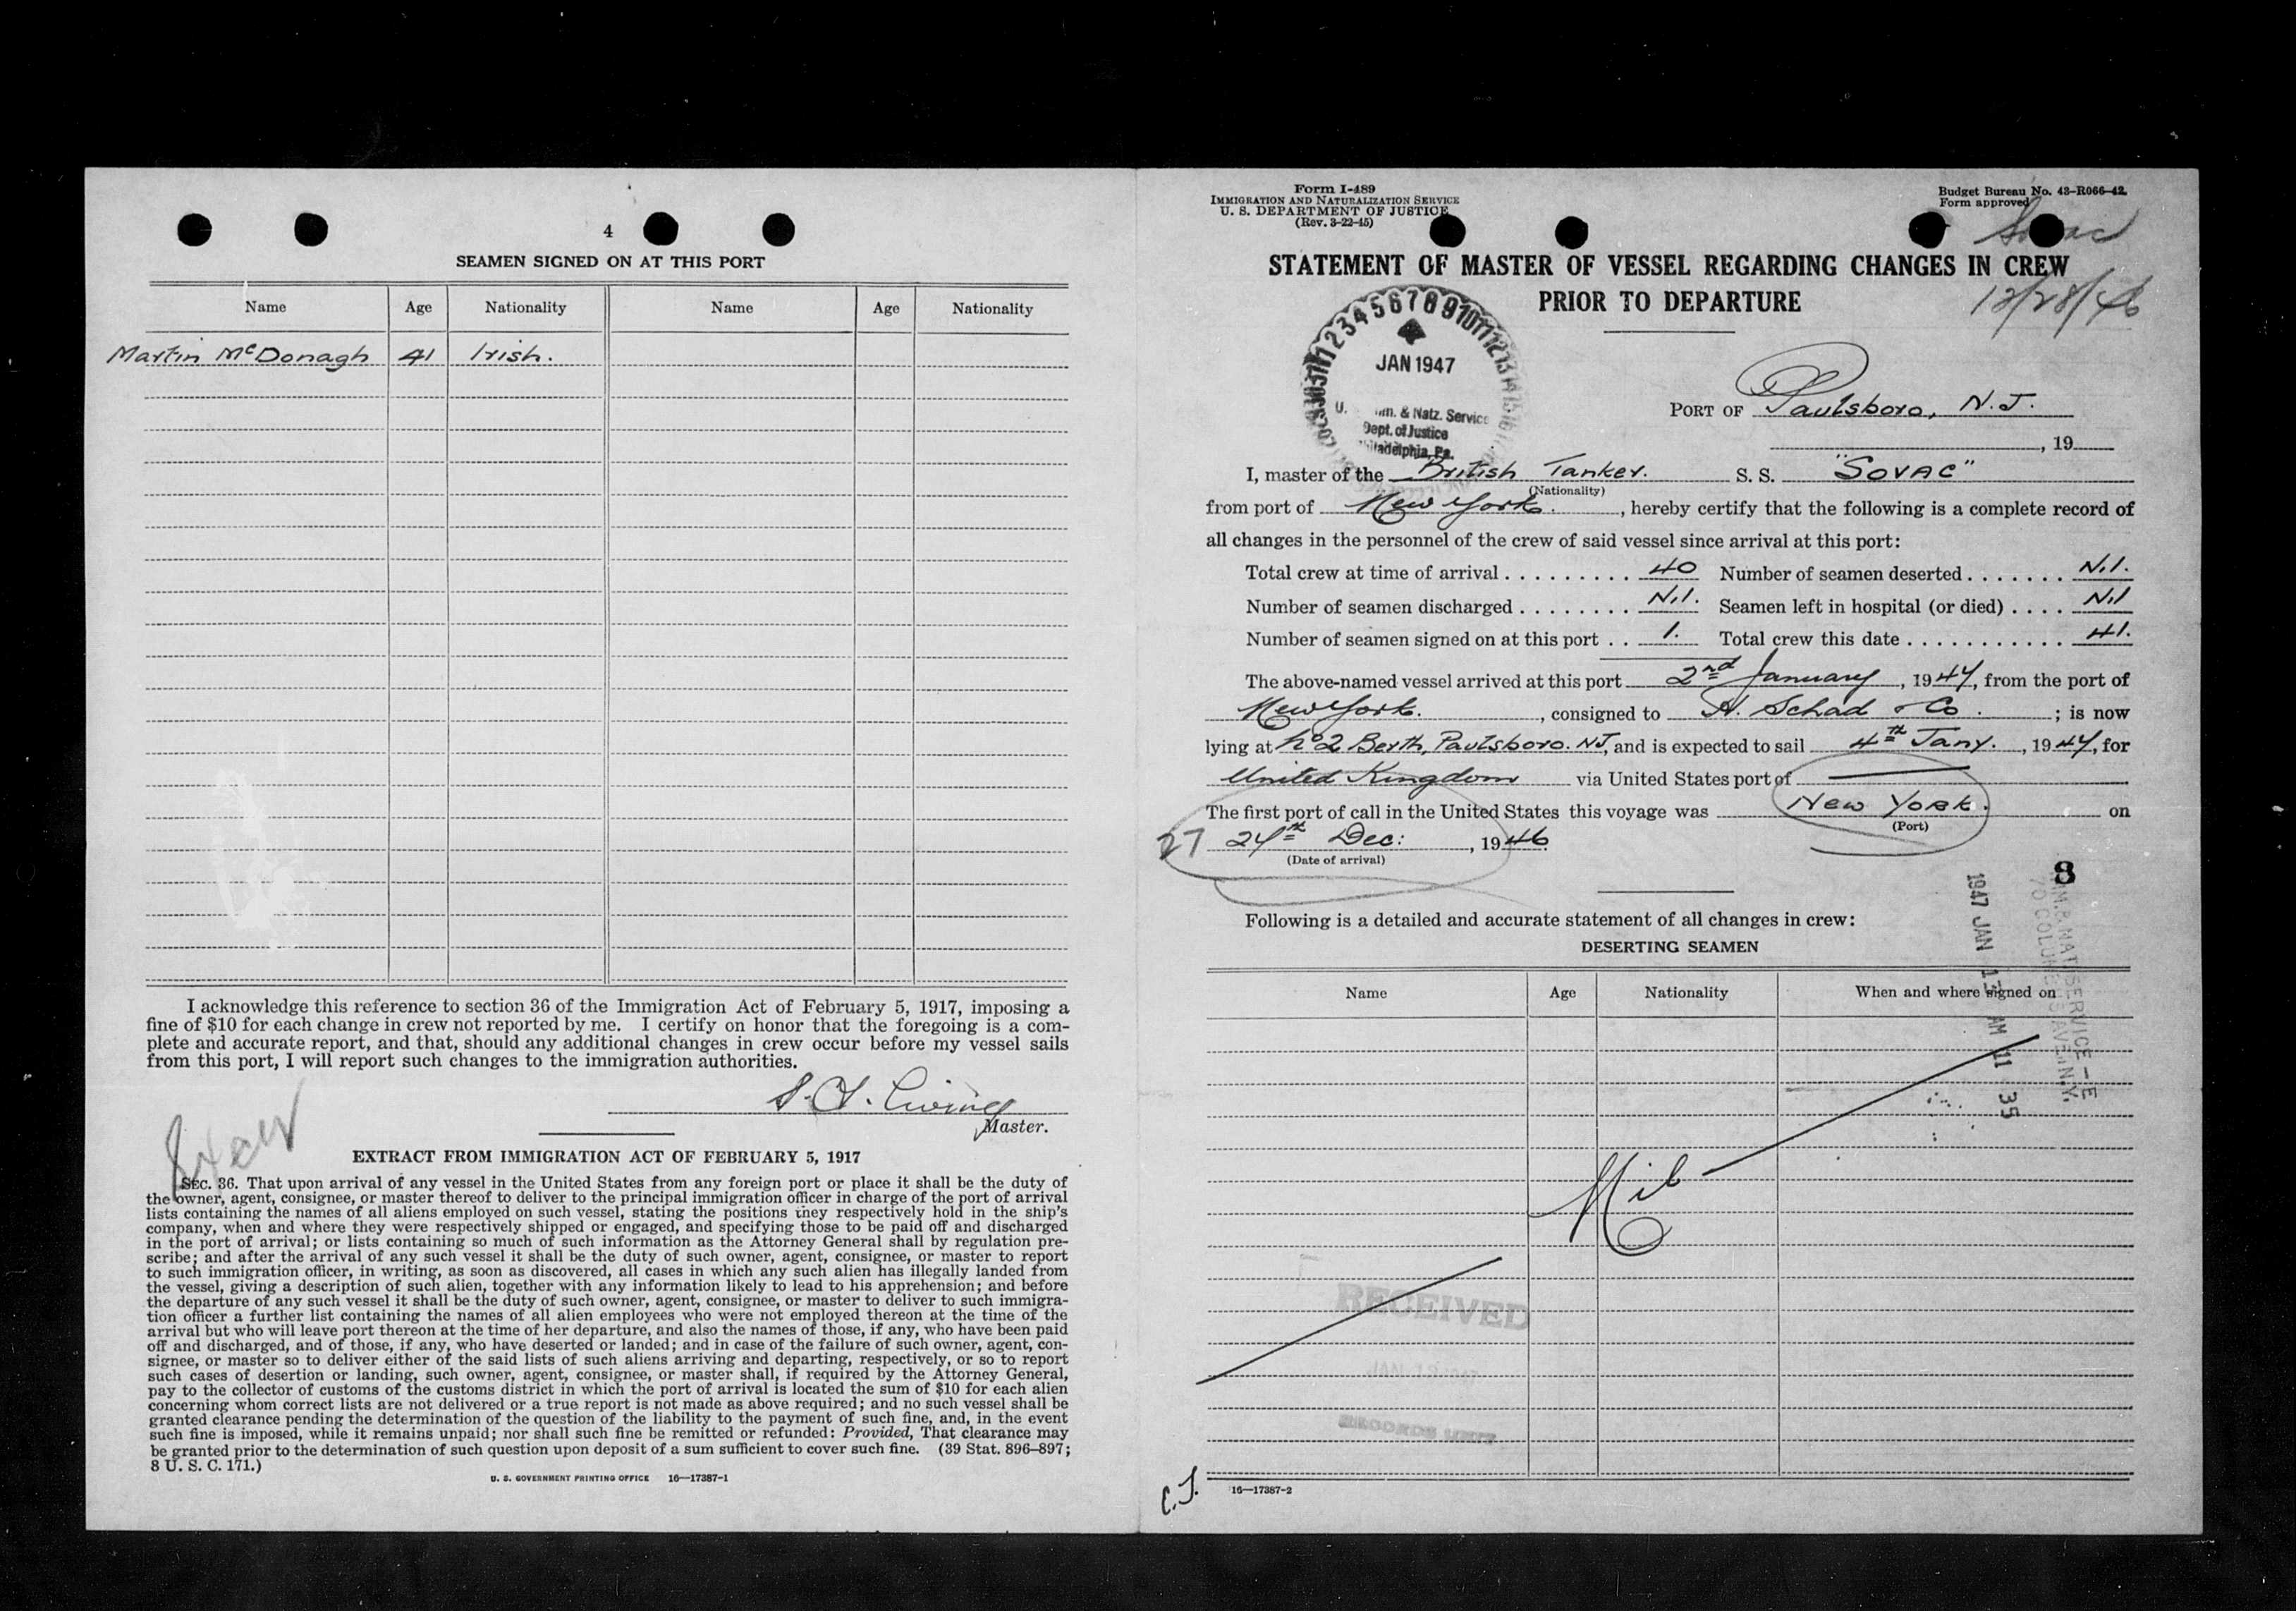 4
SEAMEN SIGNED ON AT THIS PORT
Name Age Nationality Name Age Nationality
Martin McDonagh 41 Irish.
I acknowledge this reference to section 36 of the Immigration Act of February 5, 1917, imposing a
fine of $10 for each change in crew not reported by me. I certify on honor that the foregoing is a com-
plete and accurate report, and that, should any additional changes in crew occur before my vessel sails
from this port, I will report such changes to the immigration authorities.
Master.
EXTRACT FROM IMMIGRATION ACT OF FEBRUARY 5, 1917
SEC. 36. That upon arrival of any vessel in the United States from any foreign port or place it shall be the duty of
the owner, agent, consignee, or master thereof to deliver to the principal immigration officer in charge of the port of arrival
lists containing the names of all aliens employed on such vessel, stating the positions they respectively hold in the ship's
company, when and where they were respectively shipped or engaged, and specifying those to be paid off and discharged
in the port of arrival; or lists containing so much of such information as the Attorney General shall by regulation pre-
scribe; and after the arrival of any such vessel it shall be the duty of such owner, agent, consignee, or master to report
to such immigration officer, in writing, as soon as discovered, all cases in which any such alien has illegally landed from
the vessel, giving a description of such alien, together with any information likely to lead to his apprehension; and before
the departure of any such vessel it shall be the duty of such owner, agent, consignee, or master to deliver to such immigra-
tion officer a further list containing the names of all alien employees who were not employed thereon at the time of the
arrival but who will leave port thereon at the time of her departure, and also the names of those, if any, who have been paid
off and discharged, and of those, if any, who have deserted or landed; and in case of the failure of such owner, agent, con-
signee, or master so to deliver either of the said lists of such aliens arriving and departing, respectively, or so to report
such cases of desertion or landing, such owner, agent, consignee, or master shall, if required by the Attorney General,
pay to the collector of customs of the customs district in which the port of arrival is located the sum of $10 for each alien
concerning whom correct lists are not delivered or a true report is not made as above required; and no such vessel shall be
granted clearance pending the determination of the question of the liability to the payment of such fine, and, in the event
such fine is imposed, while it remains unpaid; nor shall such fine be remitted or refunded: Provided, That clearance may
be granted prior to the determination of such question upon deposit of a sum sufficient to cover such fine. (39 Stat. 896–897;
8 U. S. C. 171.)
U. S. GOVERNMENT PRINTING OFFICE 16—17387-1
Form I-489
IMMIGRATION AND NATURALIZATION SERVICE
U. S. DEPARTMENT OF JUSTICE
(Rev. 3-22-45)
Budget Bureau No. 43-R066-42.
Form approved
Sovac
STATEMENT OF MASTER OF VESSEL REGARDING CHANGES IN CREW
PRIOR TO DEPARTURE
12/28/46
JAN 1947
U. Imm. & Natz. Service
Dept. of Justice
Philadelphia, Pa.
PORT OF Paulsboro, N.J.
, 19
I, master of the British Tanker. S. S. "SOVAC"
(Nationality)
from port of New York. , hereby certify that the following is a complete record of
all changes in the personnel of the crew of said vessel since arrival at this port:
Total crew at time of arrival 40 Number of seamen deserted Nil.
Number of seamen discharged Nil. Seamen left in hospital (or died) Nil
Number of seamen signed on at this port 1. Total crew this date 41.
The above-named vessel arrived at this port 2nd January, 1947, from the port of
New York. , consigned to A. Schad & Co. ; is now
lying at No 2 Berth, Paulsboro. NJ, and is expected to sail 4th Jany. , 1947, for
United Kingdom via United States port of —
The first port of call in the United States this voyage was New York. on
(Port)
27 24th Dec: , 1946.
(Date of arrival)
8
1947 JAN 13 AM 11 35
Following is a detailed and accurate statement of all changes in crew:
DESERTING SEAMEN
Name Age Nationality When and where signed on
Nil
RECEIVED
RECORDS UNIT
16—17387-2